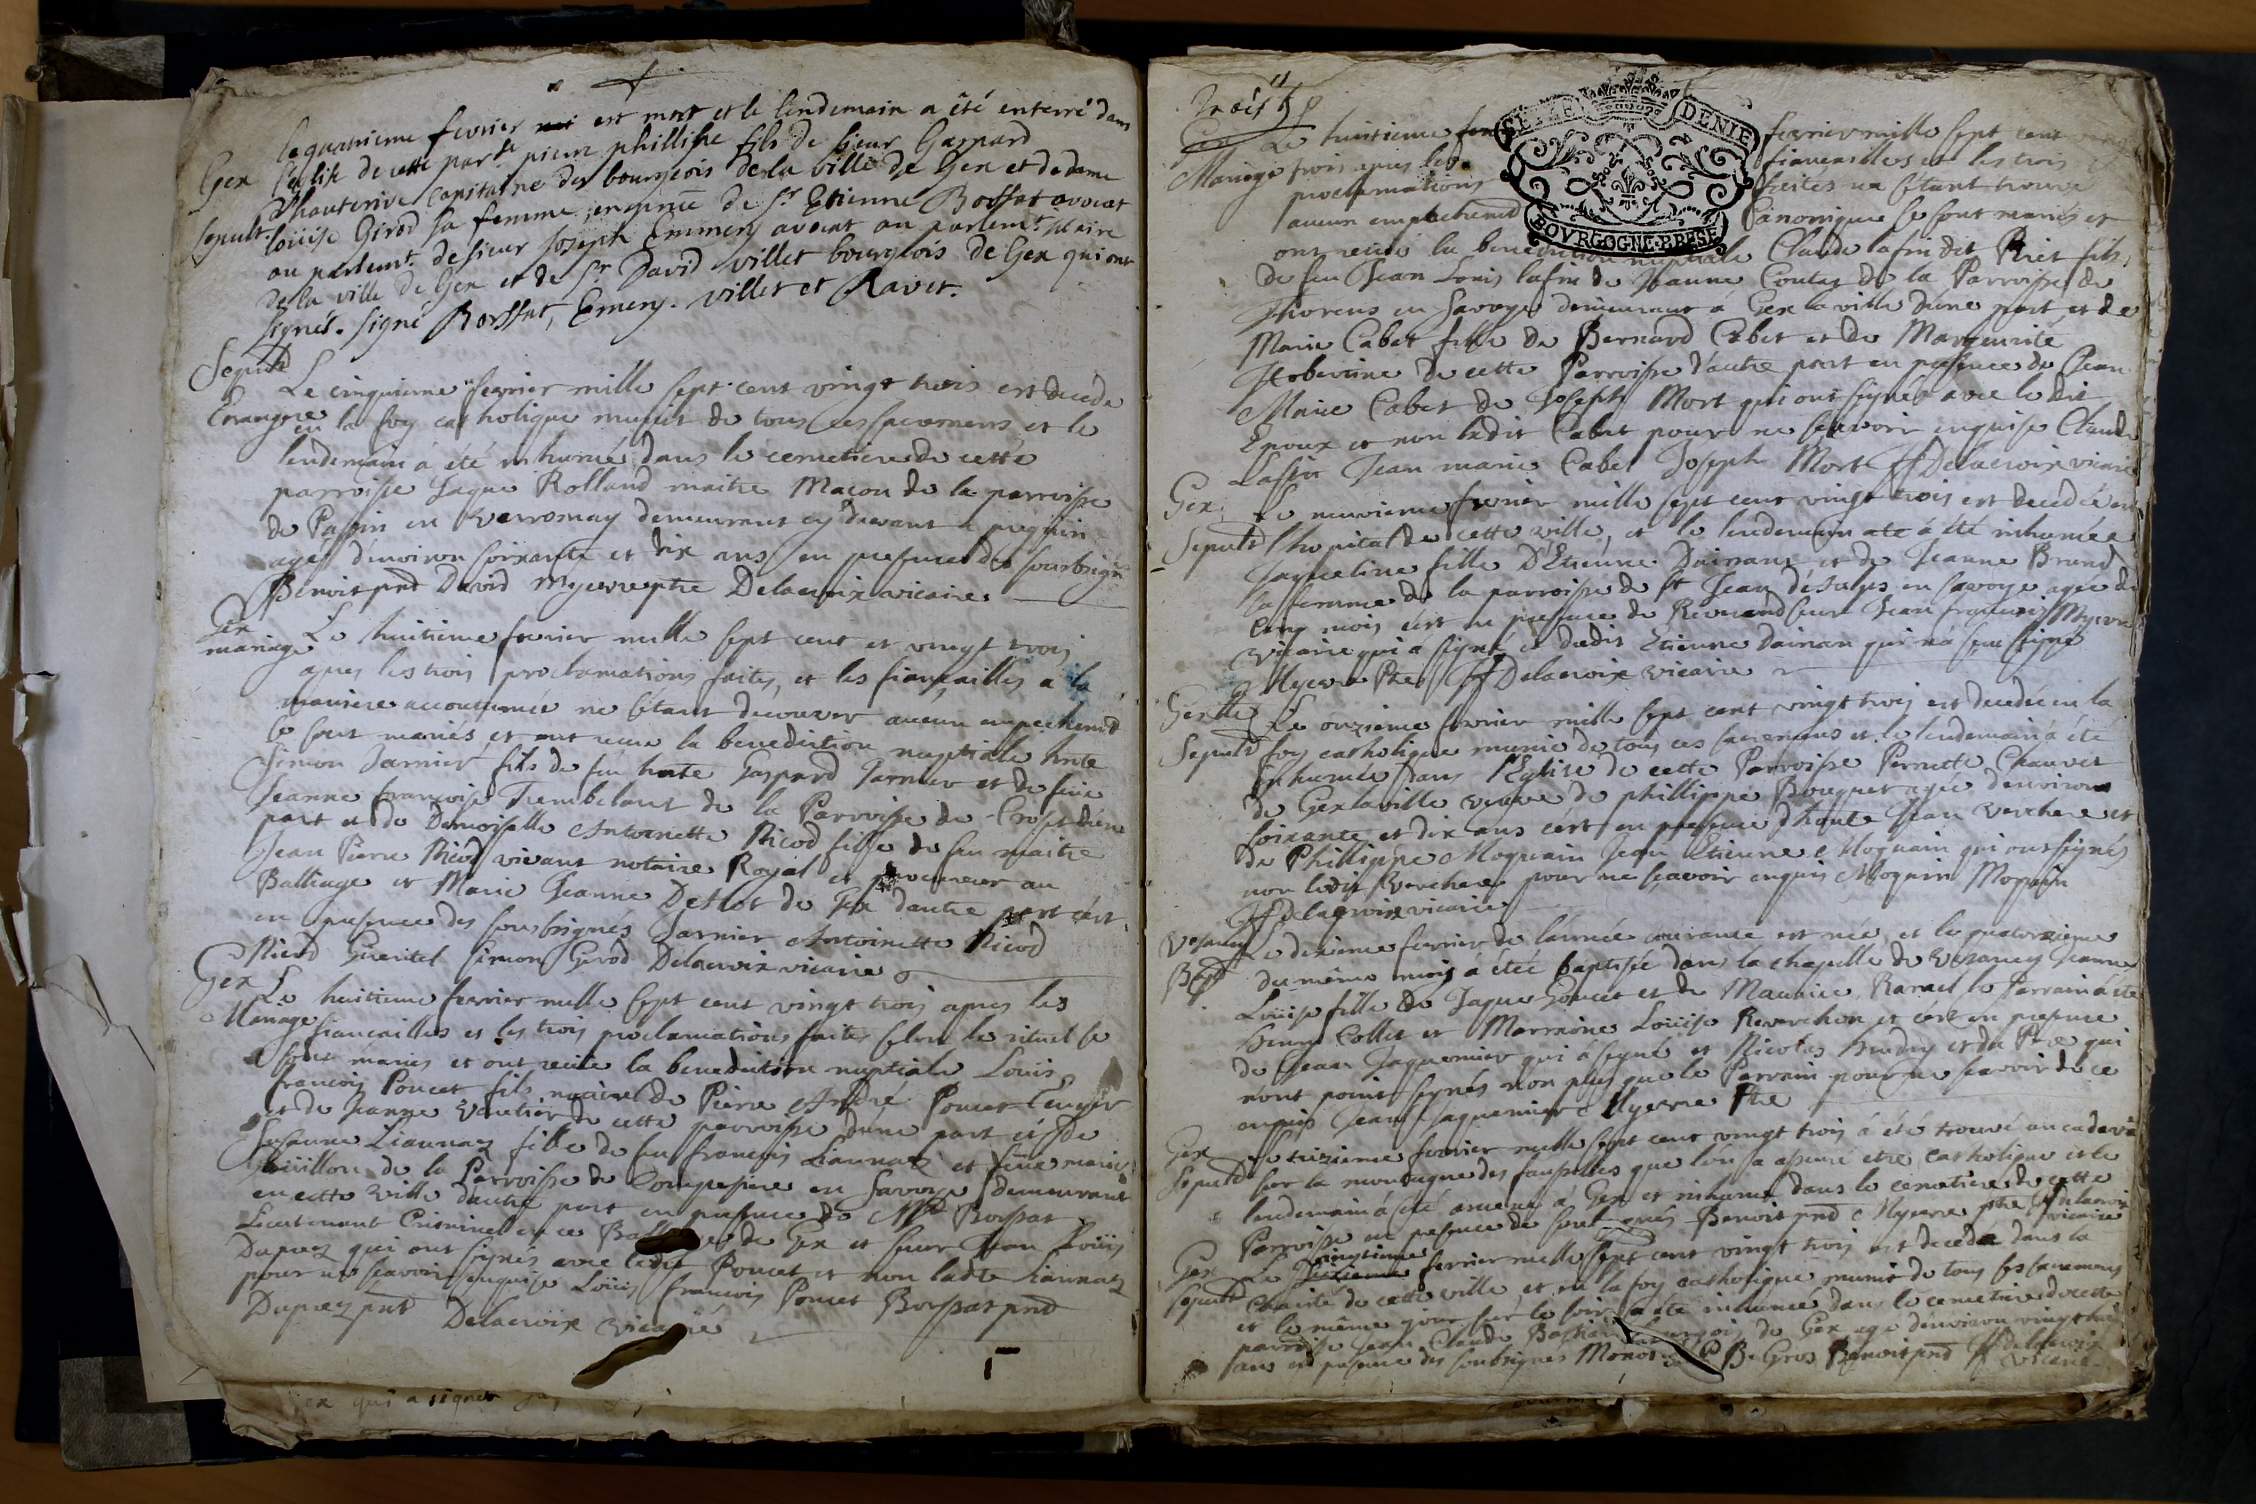 le quatrieme fevrier est mort et le lendemain a été enterré dans
Gex l'eglise de cette parse pierre phillipe fils de sieur Gaspard
d'hauterive capitaine des bourgeois de la ville de Gex et de dame
Sepult. loüise Girod sa femme, en presence de Sr Etienne Bossat avocat
au parlemt. de sieur Joseph Emmery avocat au parlemt. Maire
de la ville de Gex et de Sr David villet bourgeois de Gex qui ont
signés. Signé Borssat, Emery. villet et Ravet.
Sepult
Le cinquieme fevrier mille sept cent vingt trois est decedé
en la foy catholique munit de tous ses sacremens et le
lendemain a été inhumé dans le cemetiere de cette
parroisse Jaque Rolland maitre Macon de la parroisse
de Passin en Verromay demeurant cy devant a pregnin
agé d'environ soixante et dix ans en presence des soubsigné
Benoit pnt David Myevre ptre Delacroix vicaire
Gex
mariage Le huitieme fevrier mille sept cent et vingt trois
apres les trois proclamations faites, et les fiançailles a la
maniere accoutumée ne s'étant decouver aucun empechemt
se sont mariés et ont receu la benediction nuptiale hnte
Simon Jarnier fils de feu hnte Gaspard Jarnier et de feüe
Jeanne françoise Tremblant de la Parroisse de d'une
part et de Demoiselle Antoinette Nicod fille de feu maitre
Jean Pierre Nicod vivant notaire Royal et procureur au
Balliage et Marie Jeanne Deslot de Gex d'autre part c'est
en presence des soubsignés Jarnier Antoinette Nicod
Nicod Simon Girod Delacroix vicaire
Gex Le huitieme fevrier mille sept cent vingt trois apres les
Mariage fiancailles et les trois proclamations faites selon le rituel se
sont mariés et ont receüe la benediction nuptiale Louis
francois Poncet fils naturel de Pierre André Poncet
et de Jeanne de cette parroisse d'une part et de
Susanne Liaunaz fille de feu francois Liaunaz et feüe marie
de la Parroisse de Compesiere en Savoye demeurant
en cette ville d'autre part en presence de Mr Borssat
Lieutenant Criminel en ce de Gex et sieur Jean Loüis
Duprez qui ont signés avec ledit Poncet et non ladte Liaunaz
pour ne scavoir enquise Loüis francois Poncet Borssat pnt
Duprez pnt Delacroix vicaire
ex qui a signer
Trois
Gex Le huitieme fevrier mille sept cent
Mariage trois apres les fiancailles et les trois
proclamations faites ne s'étant trouvé
aucun empechement Canonique se sont mariés et
ont receüe la benediction nuptiale Claude lafin dit fils
de feu Jean Louis lafin de Jeanne Contat de la Parroisse de
Thorens en Savoye demeurant à Gex la ville d'une part et de
Marie Cabet fille de Bernard Cabet et de Marguerite
de cette Parroisse d'autre part en presence de Jean
Marie Cabet de Joseph Mort qui ont signés avec le dit
Epoux et non ladit Cabet pour ne scavoir enquise Claude
Lafin Jean marie Cabet Joseph Mort Delacroix vicaire
Gex Le neuvieme fevrier mille sept cent vingt trois est decedée en
Sepult l'hopital de cette ville, et le lendemain a été inhumée
Jaqueline fille D'Etienne Dainant et de Jeanne Brund
sa femme de la parroisse de St Jean en Savoye agée de
cinq mois c'est en presence de Reverend sieur Jean françois Myevre
vicaire qui a signé et dudit Etienne Dainan qui n'a sceu signé
Myevre Ptre Delacroix vicaire
Gex
Sepult Le onzieme fevrier mille sept cent vingt trois est decedée en la
foy catholique munie de tous ces sacremens et le lendemain à été
inhumée dans l'Eglise de cette Parroisse Pernette Chauvet
de Gex la ville veuve de phillippe Bouquet agée d'environ
soixante et dix ans c'est en presence d'honte Jean verchere et
de Phillippe Moquain Jean Etienne Moquain qui ont signés
non ledit Verchere pour ne sçavoir enquis Moquin Moquin
Delacroix vicaire
Vesancy Le dixieme fevrier de l'année courante est née et le quatorzieme
Bap du même mois à étée baptisée dans la chapelle de Vezancy Jeanne
Loüise fille de Jaque Poncet et de Maurice Ramel le Parrain a été
henry Collet et Marraine Loüise Reverchon et c'est en presence
de Jean Jaquemier qui à signé et Nicolas et du Pere qui
n'ont point signés non plus que le Parrain pour ne scavoir de ce
enquis Jean Jaquemier Myevre Ptre
Gex Le treizieme fevrier mille sept cent vingt trois à été trouvé un cadavre
Sepult sur la montagne des faucilles que l'on a assuré etre catholique et le
lendemain à été amené à Gex et inhumé dans le cemetiere de cette
Parroisse en presence de soubsignés Benoit pnt Myevre ptre Delacroix
vicaire
Gex Le vingtieme fevrier mille sept cent vingt trois est decedé dans la
Sepult charité de cette ville et en la foy catholique munit de tous ses sacremens
et le même jour sur le soir a été inhumé dans le cemetiere de cette
parroisse Jean Claude bourgeois de Gex agé d'environ vingt huit
ans en presence des soubsignés Gros Benoit pnt Delacroix
vicaire
BOURGOGNE BRESSE